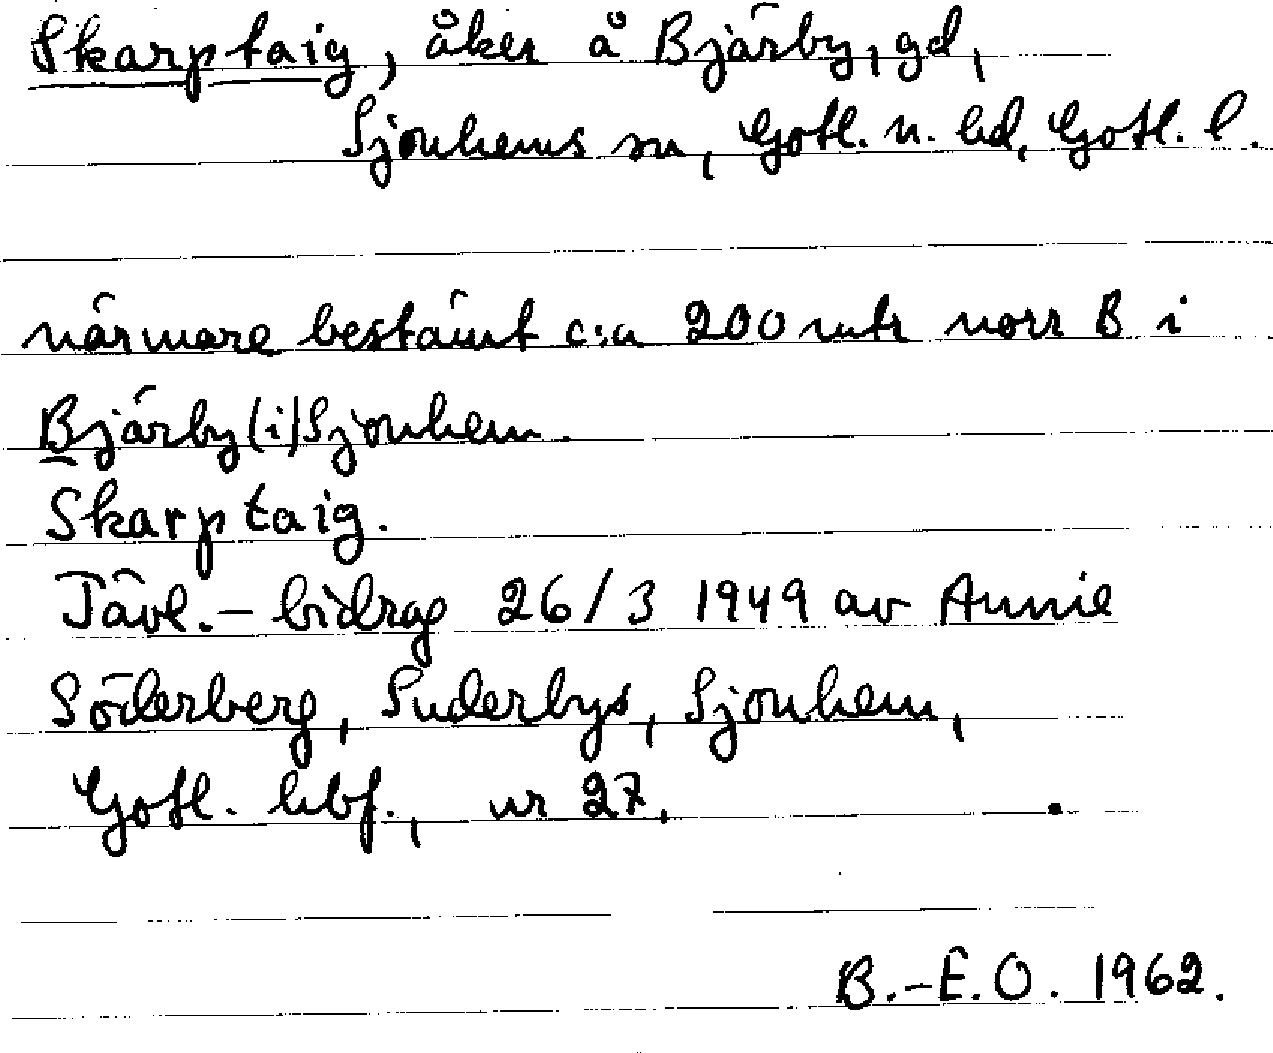 Skarptaig, åker å Bjärby, gd,
Sjonhems sn, Gotl. n. hd, Gotl. l.
närmare bestämt c:a 200 mtr norr B i
Bjärby (i) Sjonhem.
Skarptaig.
Tävl.- bidrag 26/3 1949 av Annie
Söderberg, Suderbys, Sjonhem,
Gotl. hbf., nr 27.
B.-E.O. 1962.